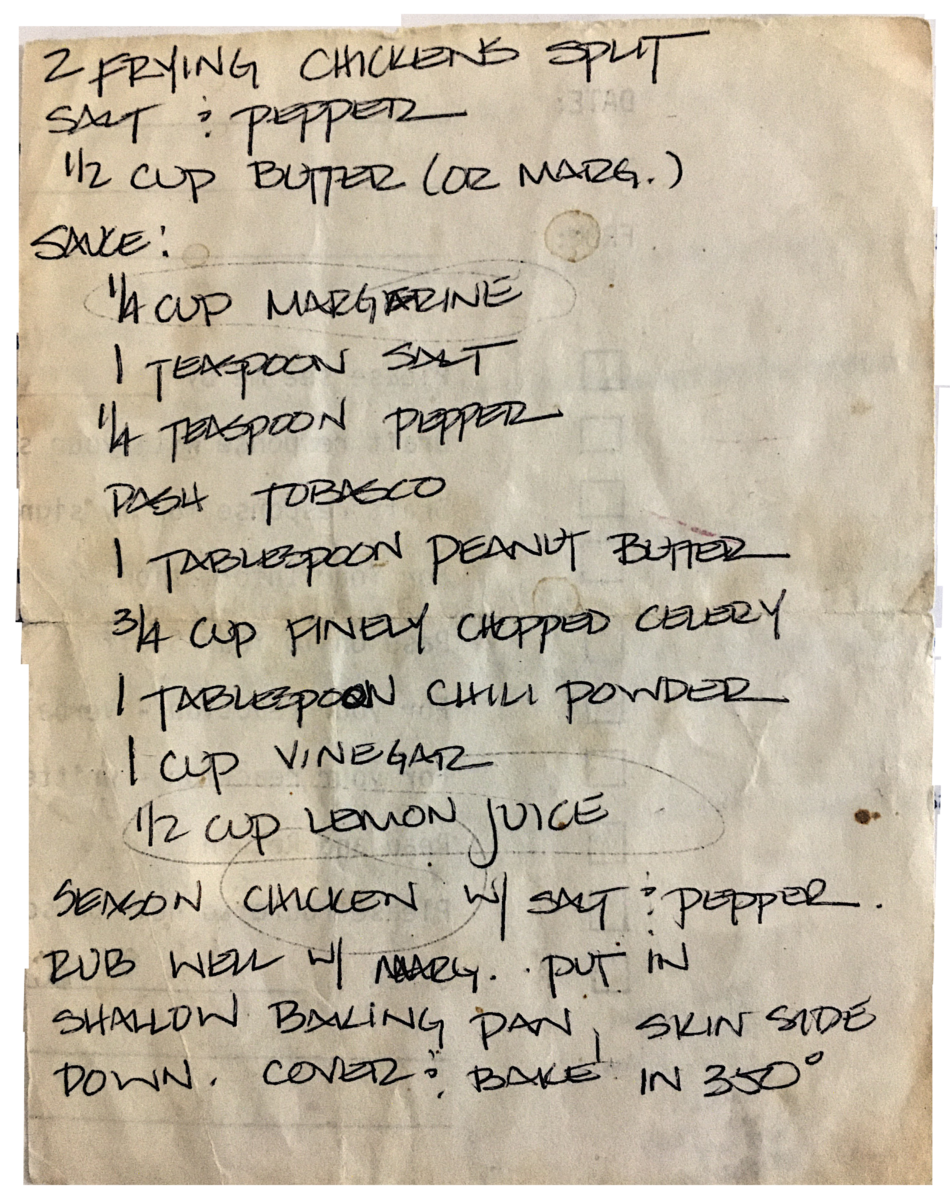 2 FRYING CHICKENS SPLIT
SALT & PEPPER
1/2 CUP BUTTER (OR MARG.)
SAUCE:
1/4 CUP MARGERINE
1 TEASPOON SALT
1/4 TEASPOON PEPPER
DASH TOBASCO
1 TABLESPOON PEANUT BUTTER
3/4 CUP FINELY CHOPPED CELERY
1 TABLESPOON CHILI POWDER
1 CUP VINEGAR
1/2 CUP LEMON JUICE
SEASON CHICKEN W/ SALT & PEPPER.
RUB WELL W/ MARG. PUT IN
SHALLOW BAKING PAN, SKIN SIDE
DOWN. COVER & BAKE IN 350°